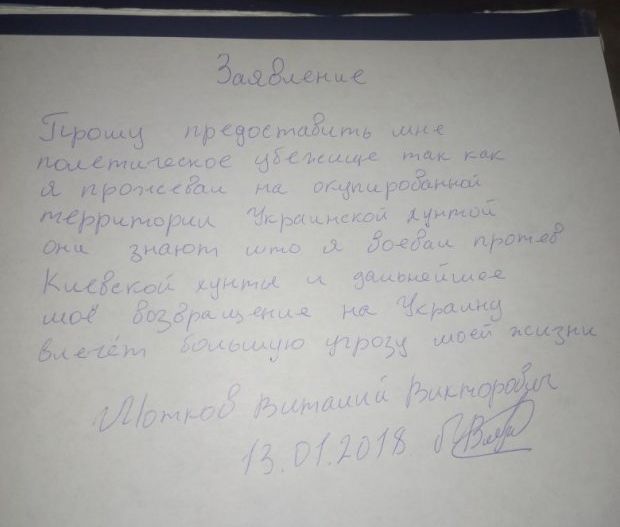 Заявление
Прошу предоставить мне
полетическое убежище так как
я прожевал на окупированной
территории Украинской хунтой
они знают што я воевал против
Киевской хунты и дальнейшее
моё возвращение на Украину
влечёт большую угрозу моей жизни
Виталий Викторович
13.01.2018